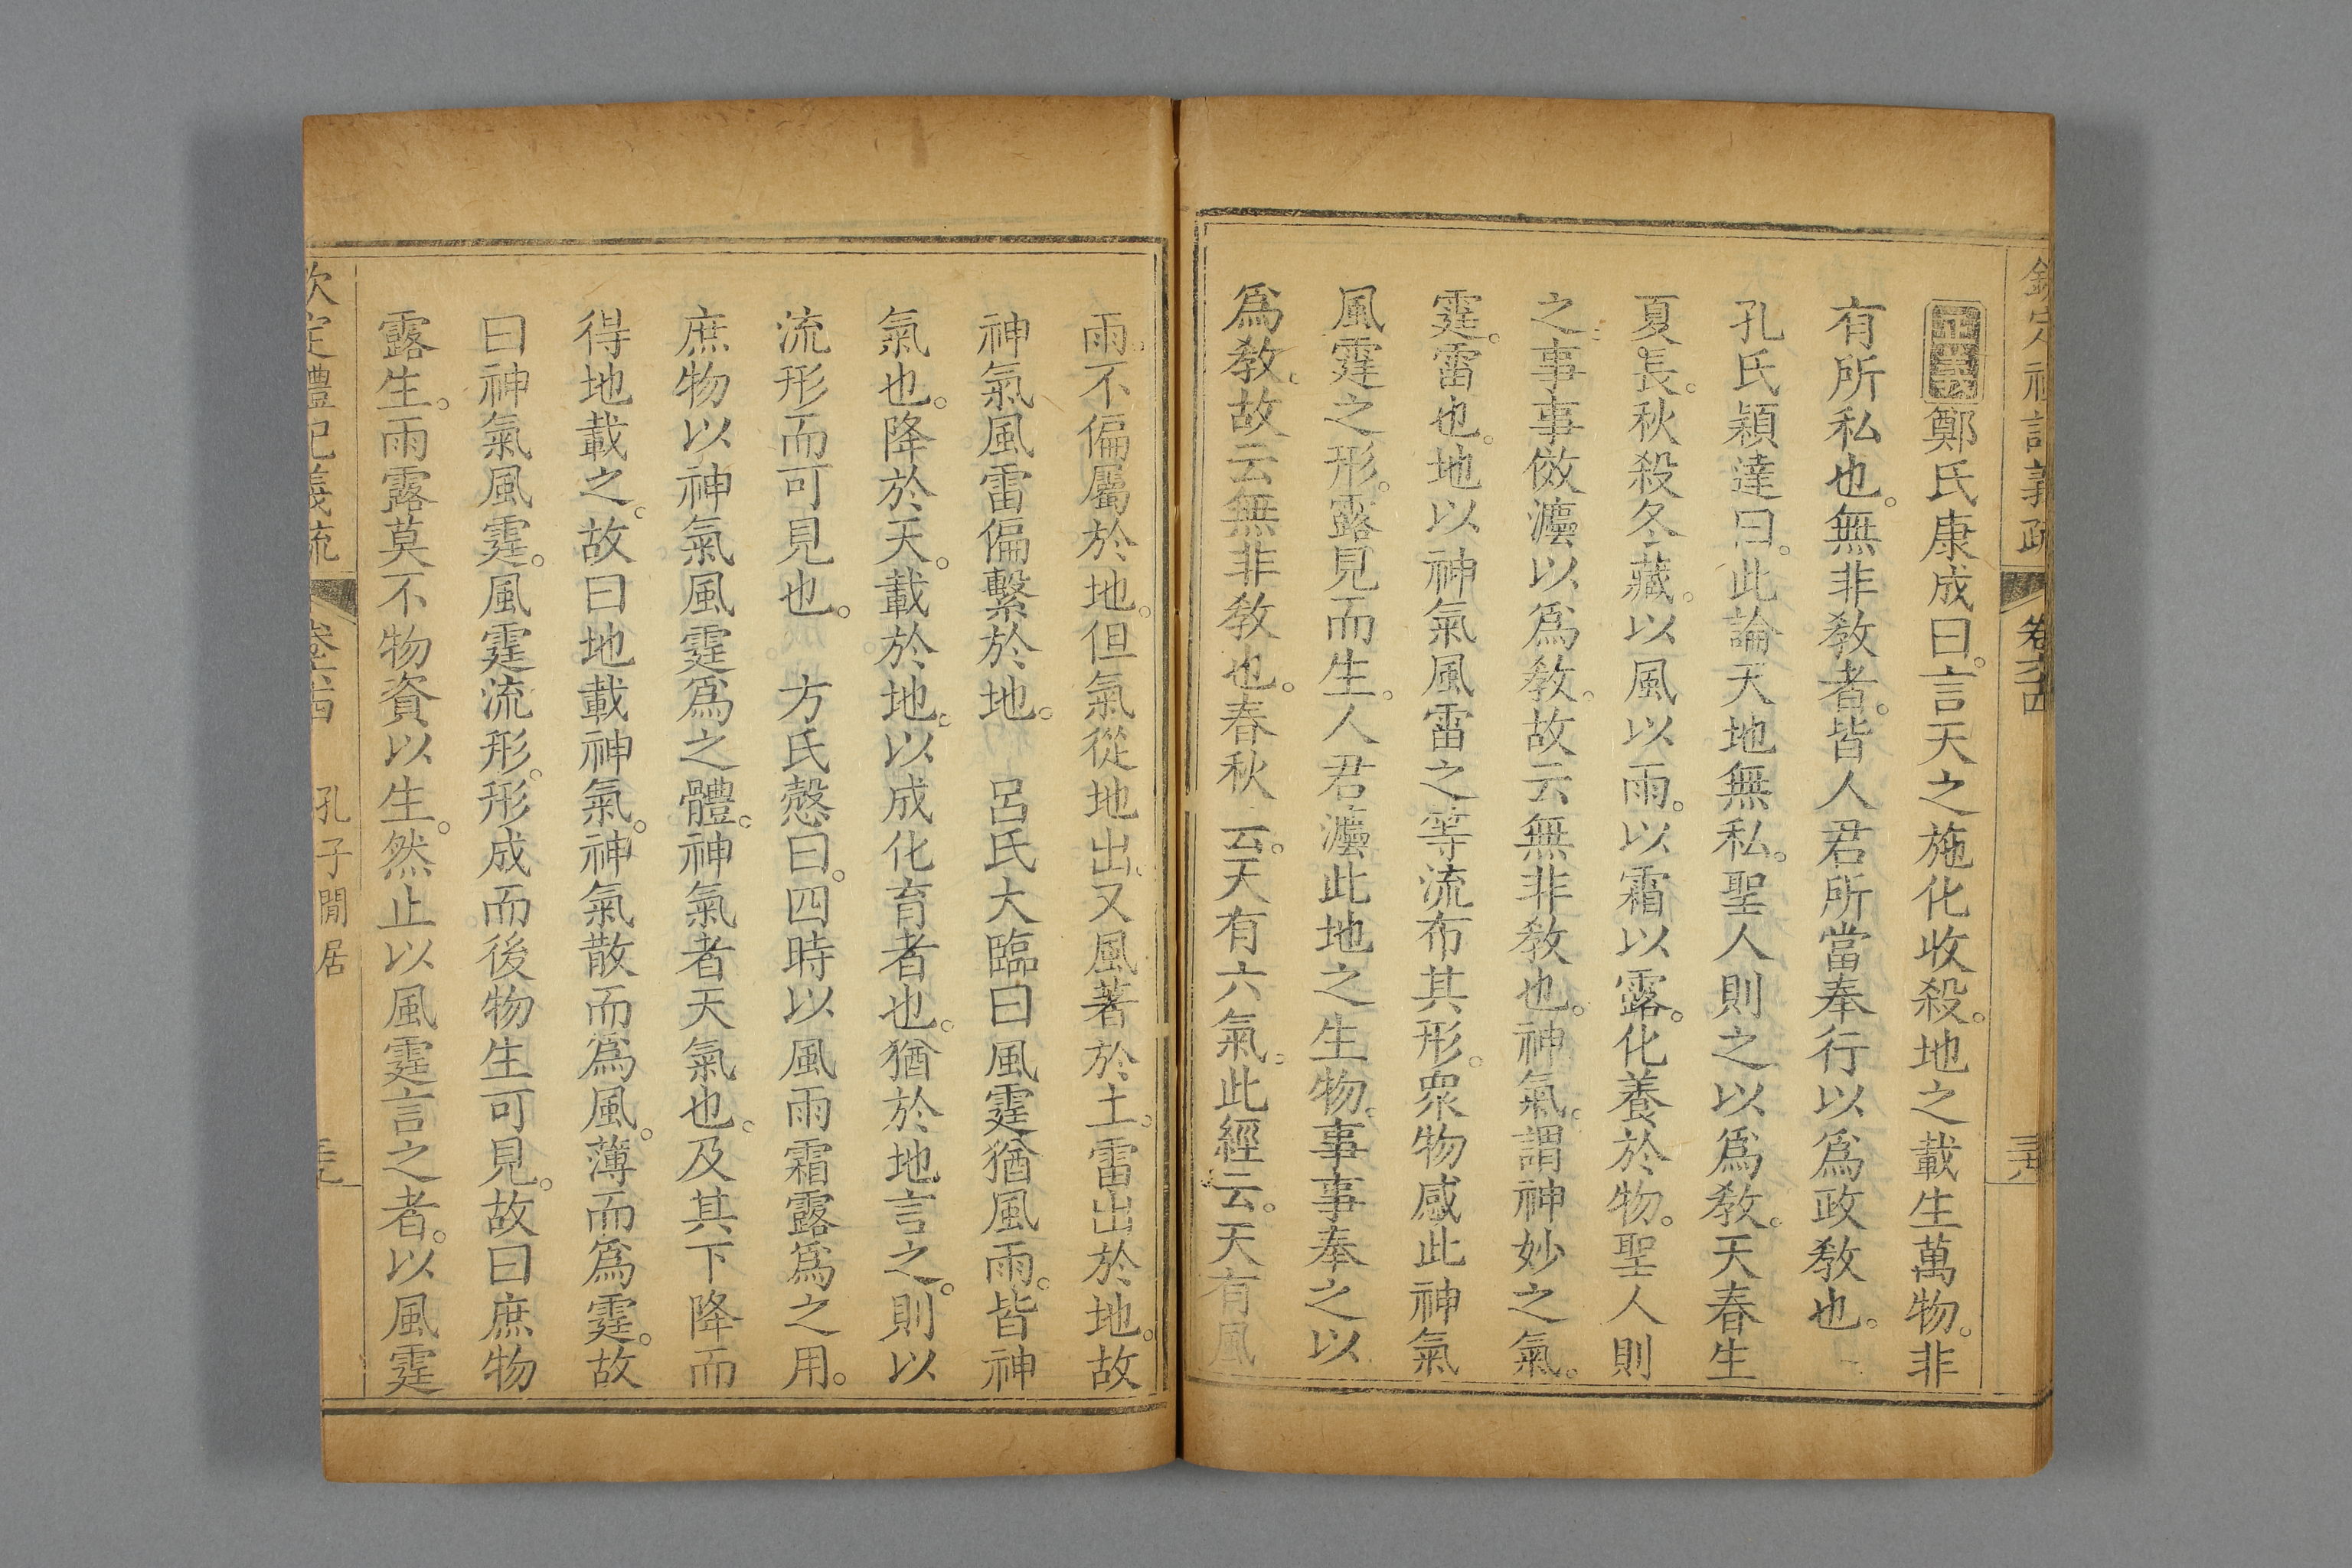 欽定禮記義疏 卷六十四 三八
正義鄭氏康成曰。言天之施化收殺。地之載生萬物。非
有所私也。無非敎者。皆人君所當奉行以爲政敎也。
孔氏穎達曰。此論天地無私。聖人則之以爲敎。天春生
夏長。秋殺冬藏。以風以雨。以霜以露。化養於物。聖人則
之。事事倣灋以爲敎。故云無非敎也。神氣。謂神妙之氣。
霆。雷也。地以神氣風雷之等。流布其形。衆物感此神氣
風霆之形。露見而生。人君灋此地之生物。事事奉之以
爲敎。故云無非敎也。春秋云。天有六氣。此經云。天有風
雨。不偏屬於地。但氣從地出。又風著於土。雷出於地。故
神氣風雷偏繫於地。 呂氏大臨曰風霆猶風雨。皆神
氣也。降於天。載於地。以成化育者也。猶於地言之。則以
流形而可見也。 方氏慤曰。四時以風雨霜露爲之用。
庶物以神氣風霆爲之體。神氣者天氣也。及其下降而
得地載之。故曰地載神氣。神氣散而爲風。薄而爲霆。故
曰神氣風霆。風霆流形。形成而後物生可見。故曰庶物
露生。雨露莫不物資以生。然止以風霆言之者。以風霆
欽定禮記義疏 卷六十四 孔子閒居